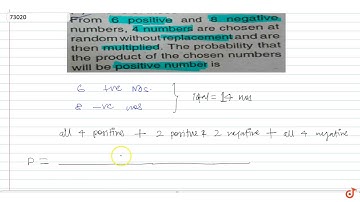 73020
From 6 positive and 8 negative
numbers, 4 numbers are chosen at
random without replacement and are
then multiplied. The probability that
the product of the chosen numbers
will be positive number is
6 +ve nos.
8 -ve nos
total = 14 nos
all 4 positives + 2 positive & 2 negative + all 4 negative
P =